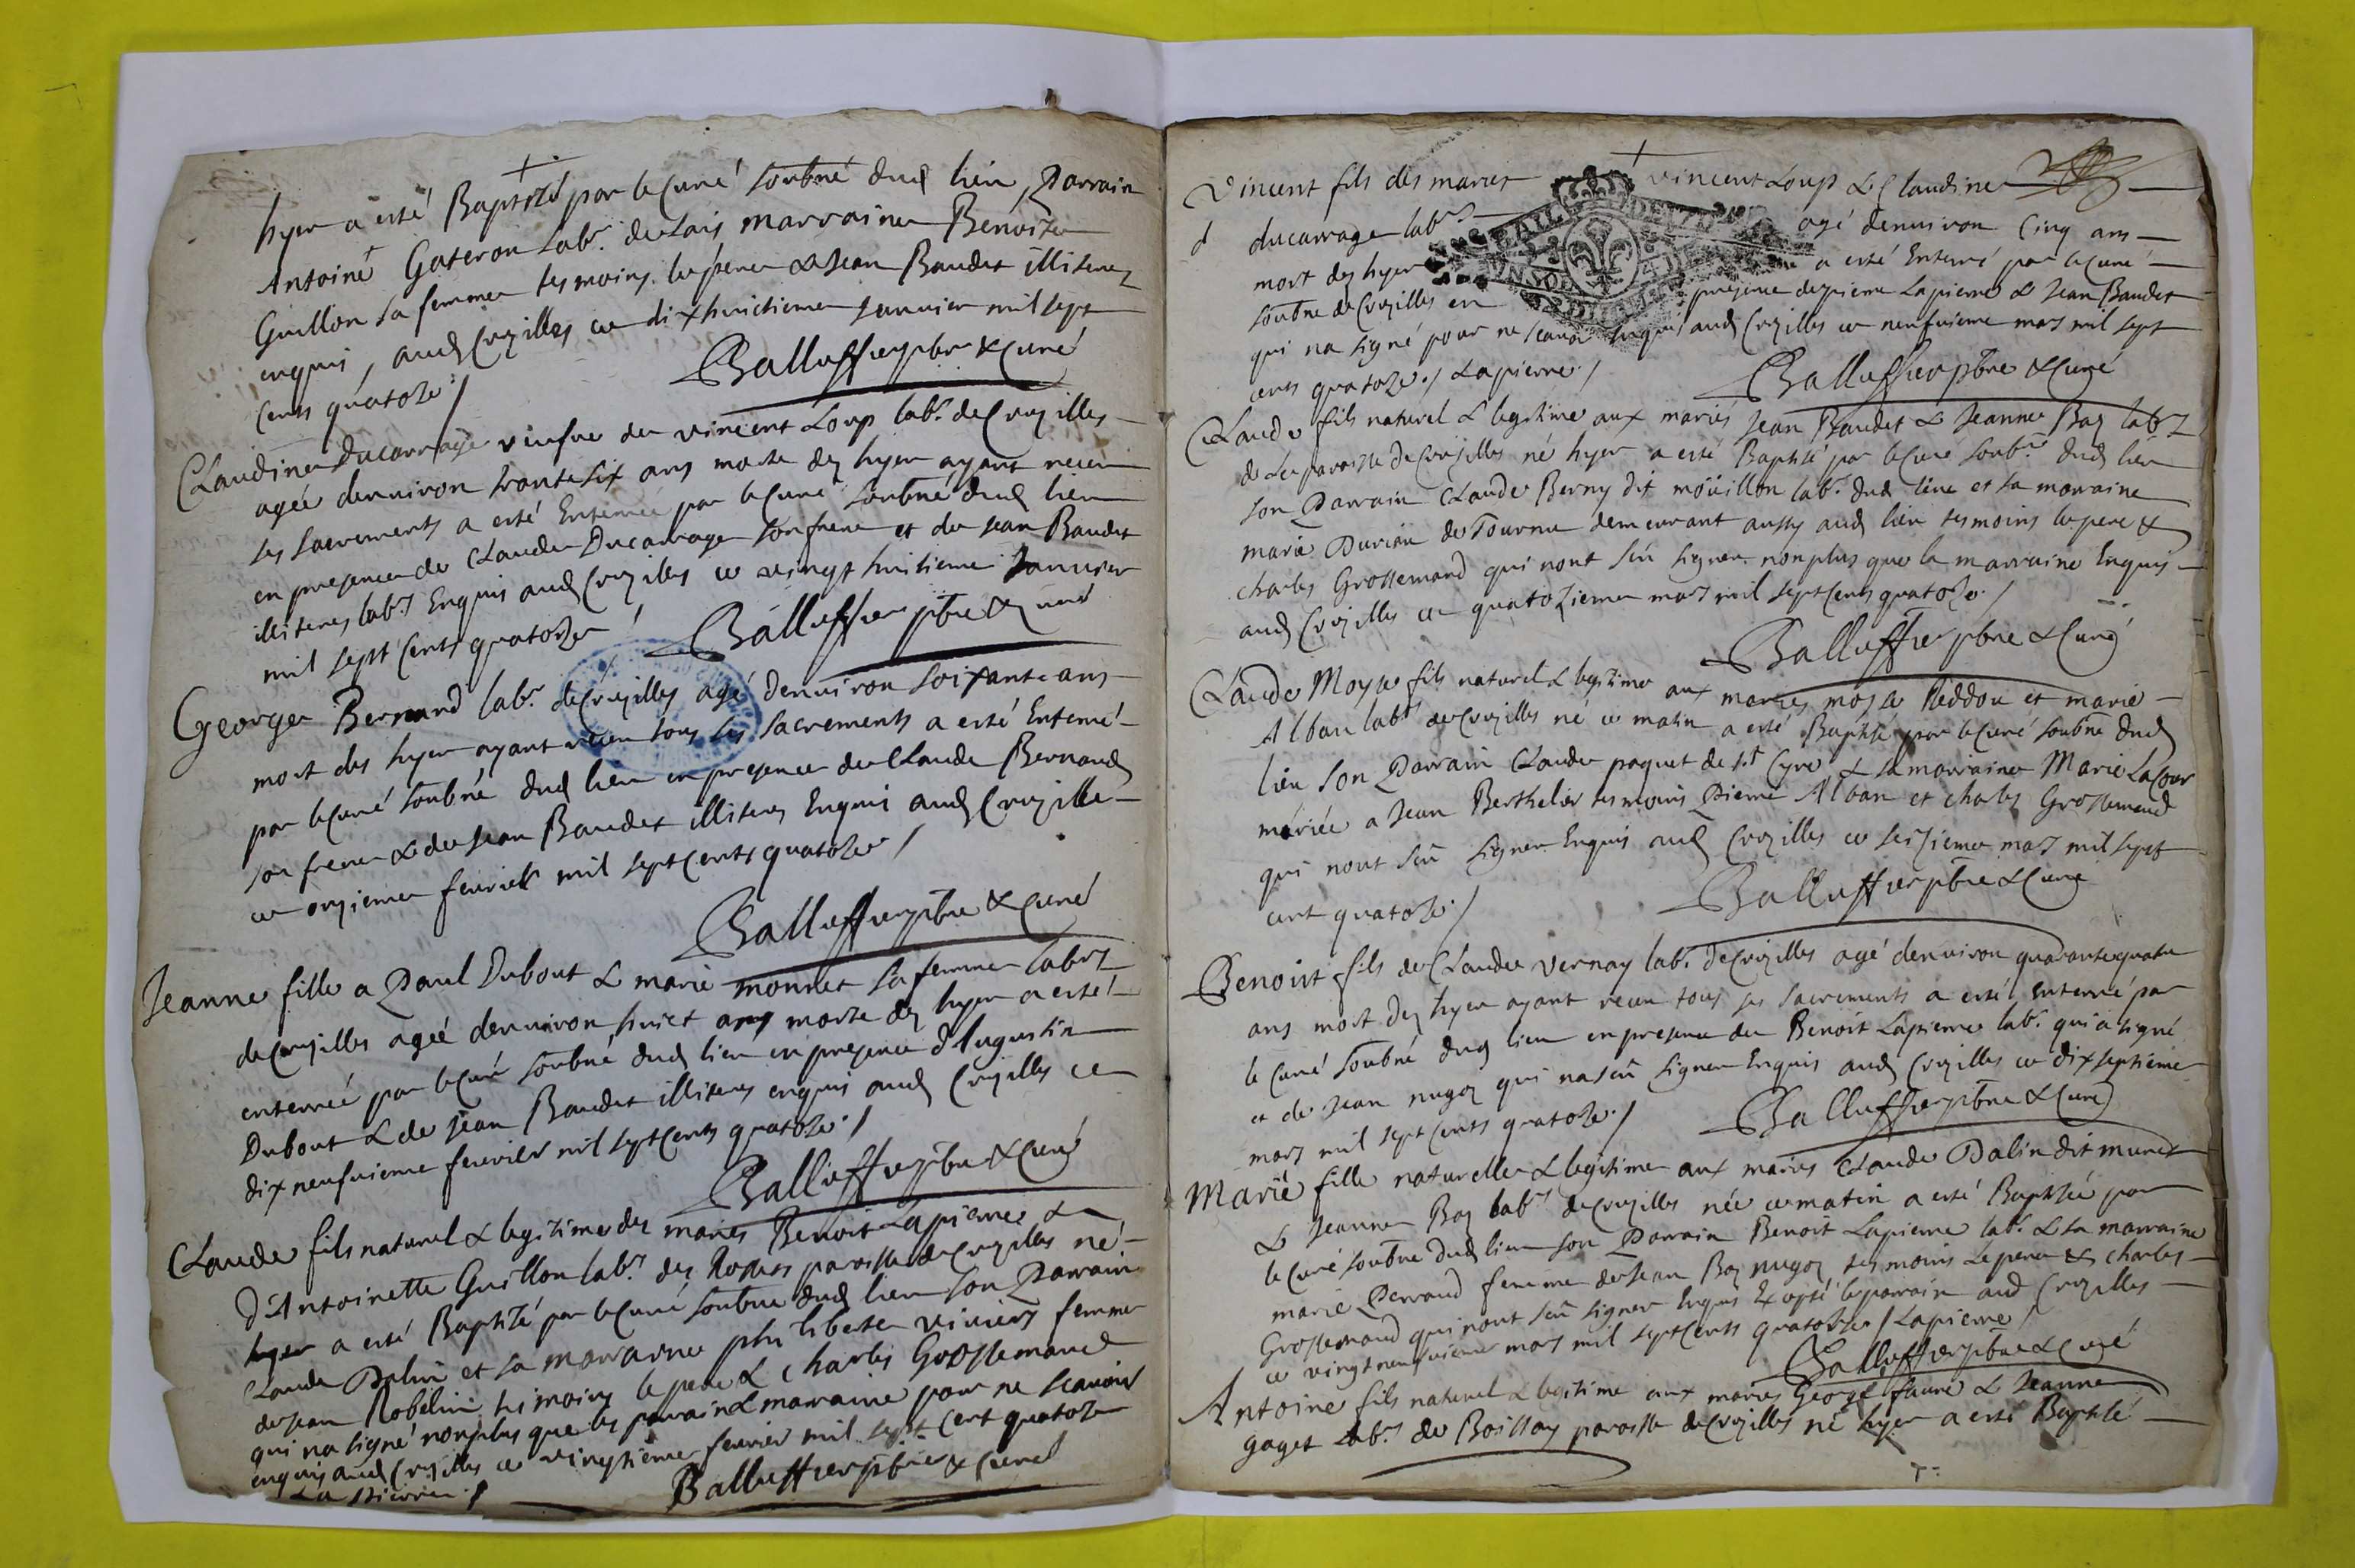 hyer a esté Baptisé par le Curé soubné dud lieu, Parrain
Antoine Gateron labr. de lais marraine Benoite
Guillon sa femme tesmoins le pere & Jean Baudet illiteres
enquis, aud Cruzilles ce dixhuictieme Janvier mil sept
cents quatoze /
Balluffier pbre & Curé
Claudine Ducarrage veufve de vincent Loup labr. de Cruzilles
agée denviron trante six ans morte dez hyer ayant receu
ses sacrements a esté Enterrée par le Curé soubné dud lieu
en presence de Claude Ducarrage son frere et de Jean Baudet
illiteres labrs Enquis aud Cruzilles ce vingt huitieme Janvier
mil sept cents quatoze /
Balluffier pbre & Curé
George Bernand labr. de Cruzilles agé denviron soixante ans
mort dés hyer ayant receu tous ses sacrements a esté Enterré
par le Curé soubné dud lieu en presence de Claude Bernaud
son frere & de Jean Baudet illiteres Enquis aud Cruzille
ce onzieme fevrier mil sept cents quatoze /
Balluffier pbre & Curé
Jeanne fille a Paul Dubout & marie monnet sa femme labrs
de Cruzilles agée denviron huict ans morte dez hyer a esté
enterreé par le Curé soubné dud lieu en presence d'Augustin
Dubout & de Jean Baudet illiteres enquis aud Cruzilles ce
dix neufvieme fevrier mil sept cents quatoze /
Balluffier pbre & Curé
Claude fils naturel & legitime des mariés Benoit Lapierre &
d'Antoinette Guillon labrs des parroisse de Cruzilles né
hyer a esté Baptisé par le Curé soubné dud lieu son Parrain
Claude Dalin et sa marraine philiberte viviers femme
de Jean Robelin tesmoins le pere & charles Grossemand
qui na signé nonplus que les parrain & marraine pour ne scavoir
enquis aud Cruzilles ce vingtieme fevrier mil sept cent quatoze
La pierre /
Balluffier pbre & Curé
Vincent fils des mariés vincent Loup & Claudine
ducarrage labrs agé denviron Cinq ans
mort dez hyer a esté Enterré par le Curé
soubné de Cruzilles en presence de pierre Lapierre & Jean Baudet
qui na signé pour ne scavoir enquis aud Cruzilles ce neufvieme mars mil sept
cents quatoze / Lapierre /
Balluffier pbre & Curé
Claude fils naturel & legitime aux mariés Jean Baudet & Jeanne Baz labrs
de la paroisse de Cruzilles né hyer a esté Baptisé par le Curé soubné dud lieu
son Parrain Claude Berny dit moüillon labr. dud lieu et sa marraine
marie Durian de Tournu demeurant aussy aud lieu tesmoins le pere &
charles Grossemand qui nont seü signer nonplus que la marraine Enquis
aud Cruzilles ce quatozieme mars mil sept cents quatoze /
Balluffier pbre & Curé
Claude Moyse fils naturel & legitime aux mariés moyse Peddou et marie
Alban labrs de Cruzilles né ce matin a esté Baptisé par le Curé soubné dud
lieu son Parrain Claude paquet de st Cyre & sa marraine Marie Lacour
mariée a Jean Berthelier tesmoins Pierre Alban et charles Grossemand
qui nont seü signer Enquis aud Cruzilles ce seizieme mars mil sept
cent quatoze /
Balluffier pbre & Curé
Benoist fils de Claude vernay labr. de Cruzilles agé denviron quarante quatre
ans mort dez hyer ayant receu tous ses sacrements a esté enterré par
le Curé soubné dud lieu en presence de Benoit Lapierre labr. qui a signé
et de Jean nugoz qui na seü signer Enquis aud Cruzilles ce dix septieme
mars mil sept cents quatoze /
Balluffier pbre & Curé
Marie fille naturelle & legitime aux mariés Claude Dalin dit munet
& Jeanne Baz labrs de Cruzilles née ce matin a esté Baptisée par
le Curé soubné dud lieu son Parrain Benoit Lapierre labr. & sa marraine
marie Perraud femme de Jean Baz nugoz tesmoins Le pere & charles
Grossemand qui nont seü signer Enquis Excepté le parrain aud Cruzilles
ce vingt neufvieme mars mil sept cents quatoze / Lapierre /
Balluffier pbre & Curé
Antoine fils naturel & legitime aux mariés George faure & Jeanne
Gaget labrs de Boissay paroisse de Cruzilles né hyer a esté Baptisé